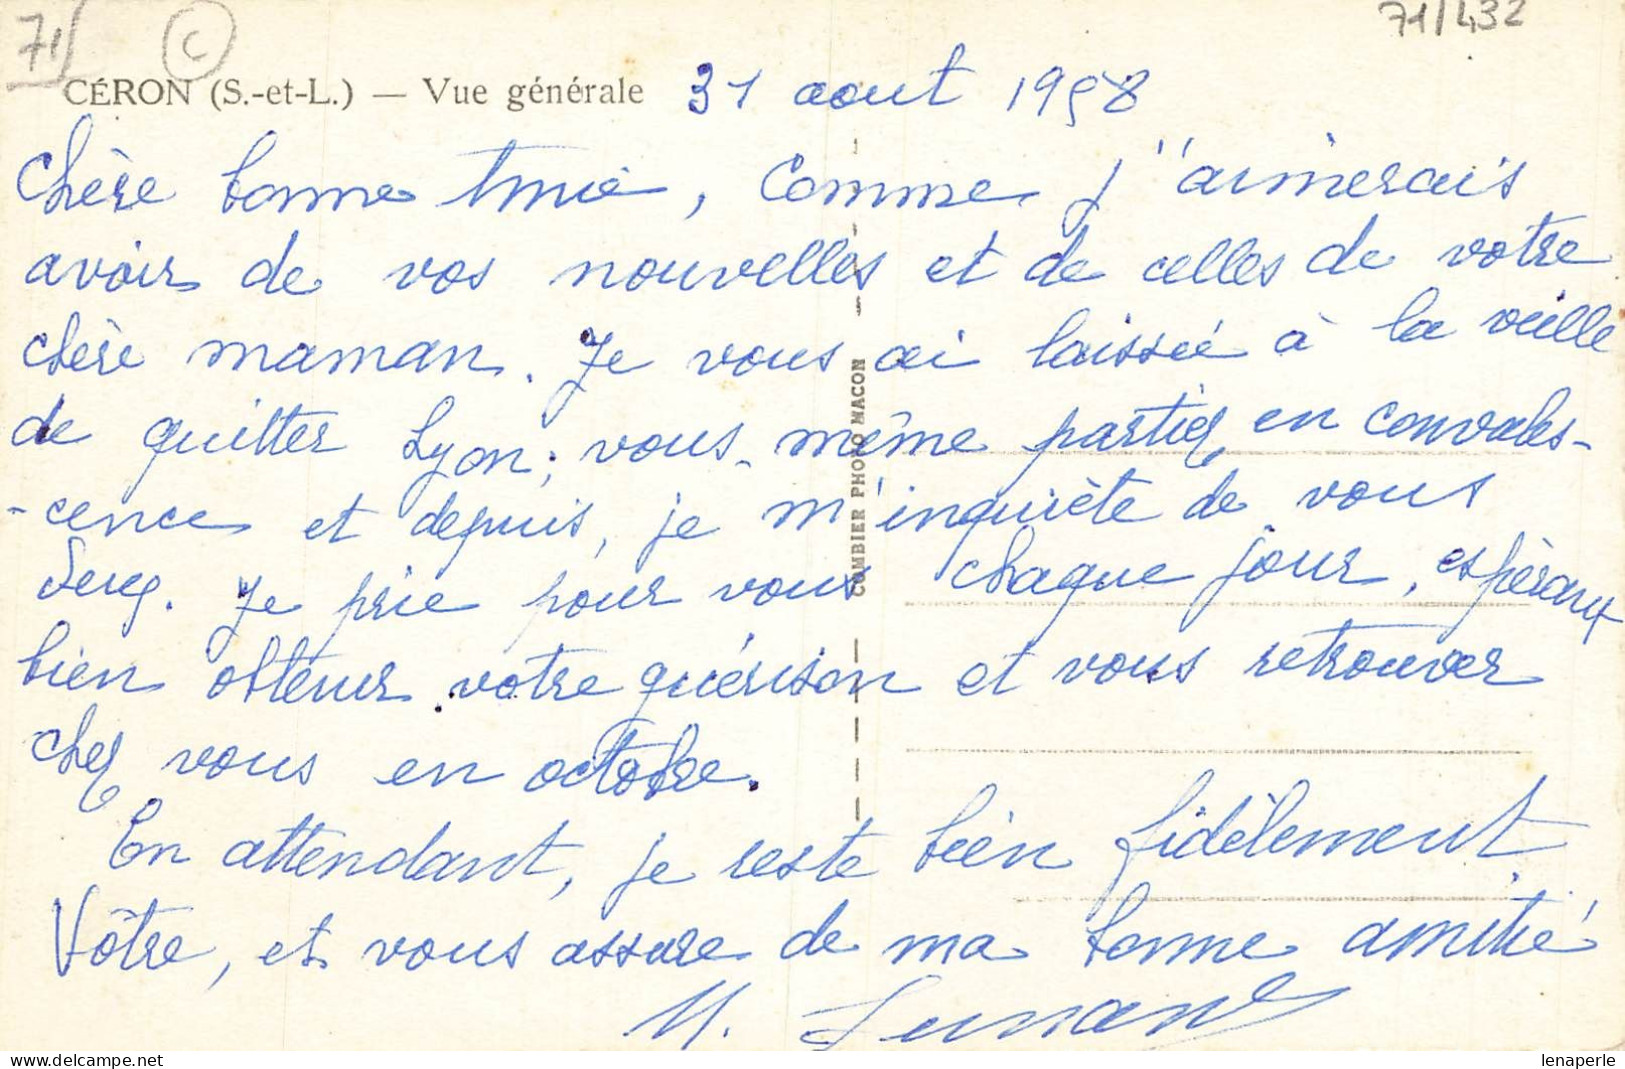 71
C
71/432
CÉRON (S.-et-L.) — Vue générale
31 aout 1958
Chère bonne Amie, Comme j'aimerais
avoir de vos nouvelles et de celles de votre
chère maman. Je vous ai laissée à la veille
de quitter Lyon; vous-même partiez en convales-
-cence et depuis, je m'inquiète de vous
deux. Je prie pour vous chaque jour, espérant
bien obtenir votre guérison et vous retrouver
chez vous en octobre.
En attendant, je reste bien fidèlement
Vôtre, et vous assure de ma bonne amitié
M.
COMBIER PHOTO MACON
lenaperle